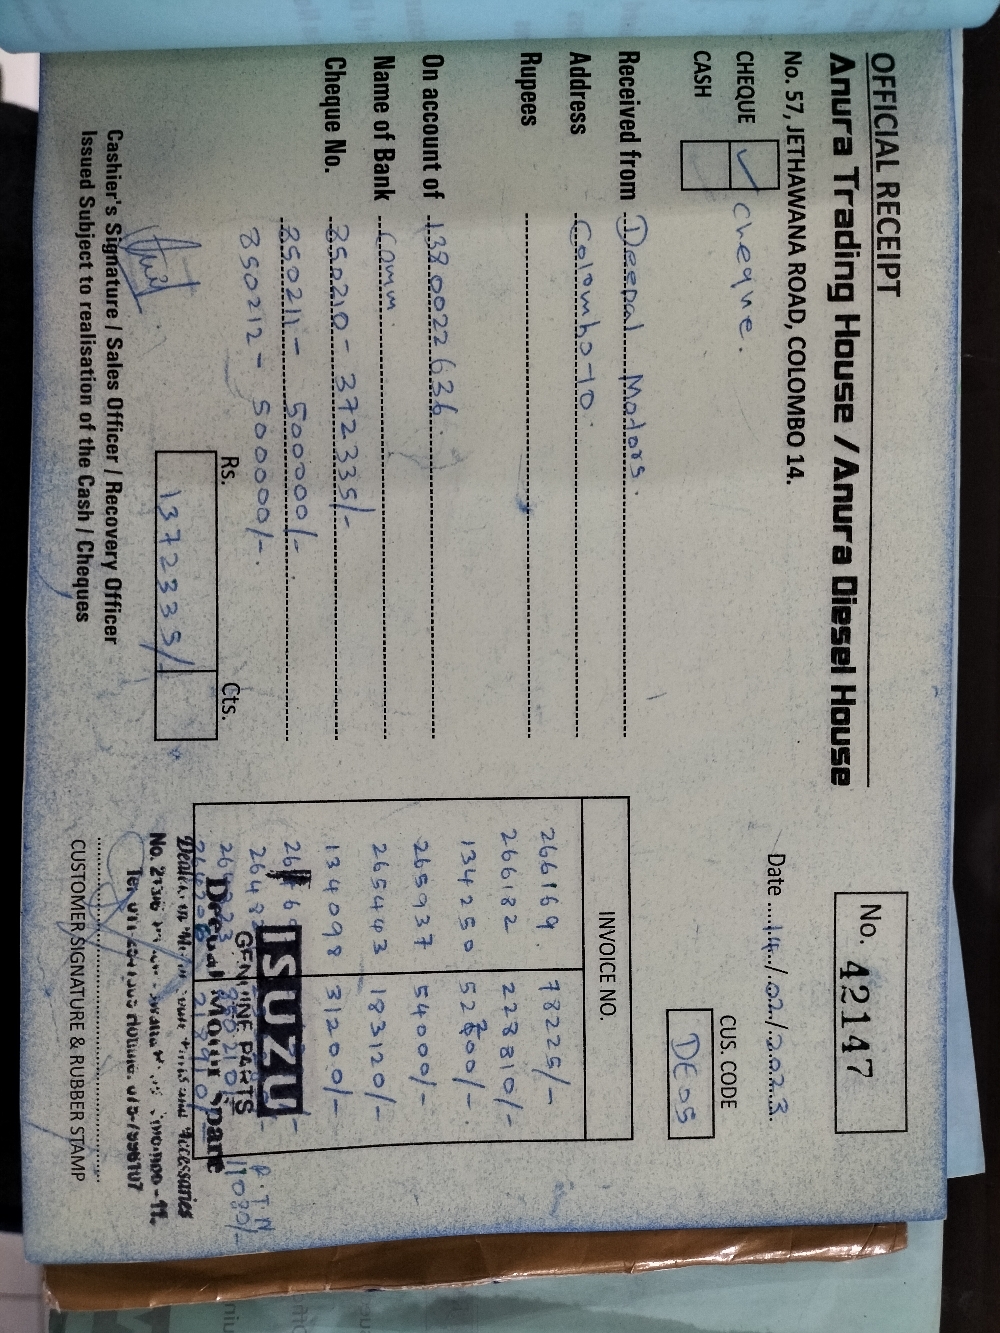 OFFICIAL RECEIPT
Anura Trading House / Anura Diesel House
No. 57, JETHAWANA ROAD, COLOMBO 14.
No. 42147
Date 14/02/2023
CHEQUE ✓ cheque.
CASH
CUS. CODE
DE05
Received from Deepal Motors.
Address Colombo-10.
Rupees
On account of 1380022636.
Name of Bank Comm.
Cheque No. 350210- 372335/-
350211- 500000/-
350212- 500000/-
Rs. Cts.
1372335/
Cashier's Signature / Sales Officer / Recovery Officer
Issued Subject to realisation of the Cash / Cheques
INVOICE NO.
266169 78225/-
266182 223810/-
134250
265937 54000/-
265443 183120/-
134098 31200/-
ISUZU
GENUINE PARTS
R.T.N
Motor Spare
Accessories
CUSTOMER SIGNATURE & RUBBER STAMP